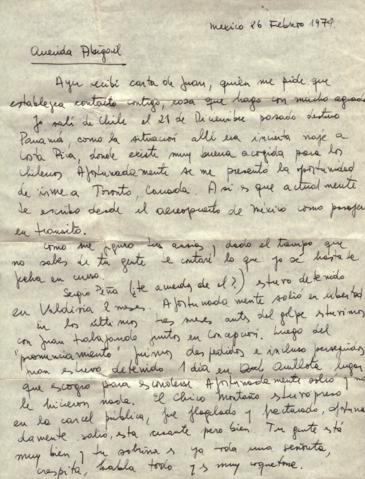 Mexico 26 Febrero 1974.
Querida Abigael
Ayer recibí carta de Juan, quién me pide que
establezca contacto contigo, cosa que hago con mucho agrado
Yo salí de Chile el 21 de Diciembre pasado destino
Panamá, como la situación allí era incierta viajé a
Costa Rica, donde existe muy buena acogida para los
chilenos. Afortunadamente se me presentó la oportunidad
de irme a Toronto, Canada. Asi es que actualmente
te escribo desde el aeropuerto de Mexico como pasajero
en tránsito.
Como me figuro tus ansias, y dado el tiempo que
no sabes de tu gente te contaré lo que yo se hasta la
fecha en curso.
Sergio Peña (¿te acuerdas de el?) estuvo detenido
en Valdivia 2 meses. Afortunadamente salió en libertad
en los últimos tres meses antes del golpe estuvimos
con Juan trabajando juntos en Concepcion. Luego del
"pronunciamiento" fuimos despedidos e incluso perseguidos
Juan estuvo detenido 1 día en Quillota, lugar
que escogió para esconderse. Afortunadamente salió y no
le hicieron nada. El Chico Montaño estuvo preso
en la carcel pública, fue flagelado y fracturado, afortuna
damente salió, esta cesante pero bien. Tu gente está
muy bien y tu sobrina es ya toda una señorita,
crespita, habla todo y es muy coquetona.